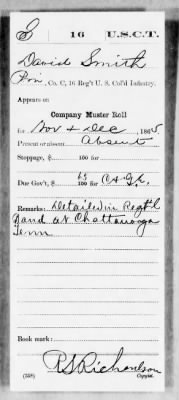 S 16 U.S.C.T.
David Smith
Pvt, Co. C, 16 Reg't U. S. Col'd Infantry.
Appears on
Company Muster Roll
for Nov & Dec, 1865
Present or absent Absent
Stoppage, $ 100 for
Due Gov't, $ 100 for C & G E
Remarks: Detailed in Regt'l
Band at Chattanooga
Tenn
Book mark:
R S Richardson
(358) Copyist.